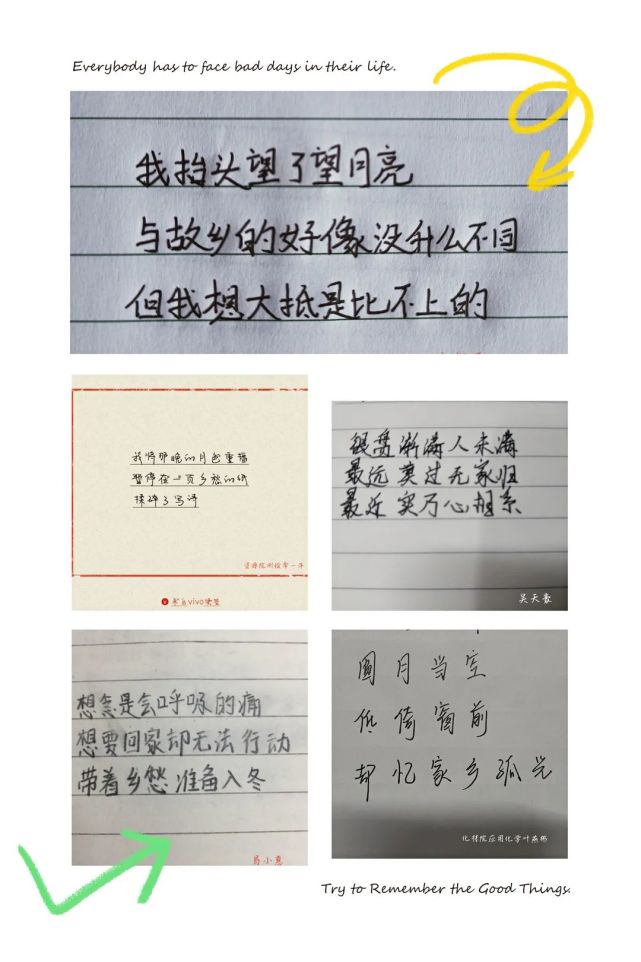 Everybody has to face bad days in their life.
我抬头望了望月亮
与故乡的好像没什么不同
但我想大抵是比不上的
我将那晚的月色重播
暂停在一页乡愁的
揉碎了写诗
资源院测绘
来自vivo便签
银盘渐满人未满
最远莫过无家归
最近实乃心相系
吴天
想念是会呼吸的痛
想要回家却无法行动
带着乡愁准备入冬
易小惠
圆月当空
低倚窗前
却忆家乡孤光
化材院应用化学叶燕
Try to Remember the Good Things.